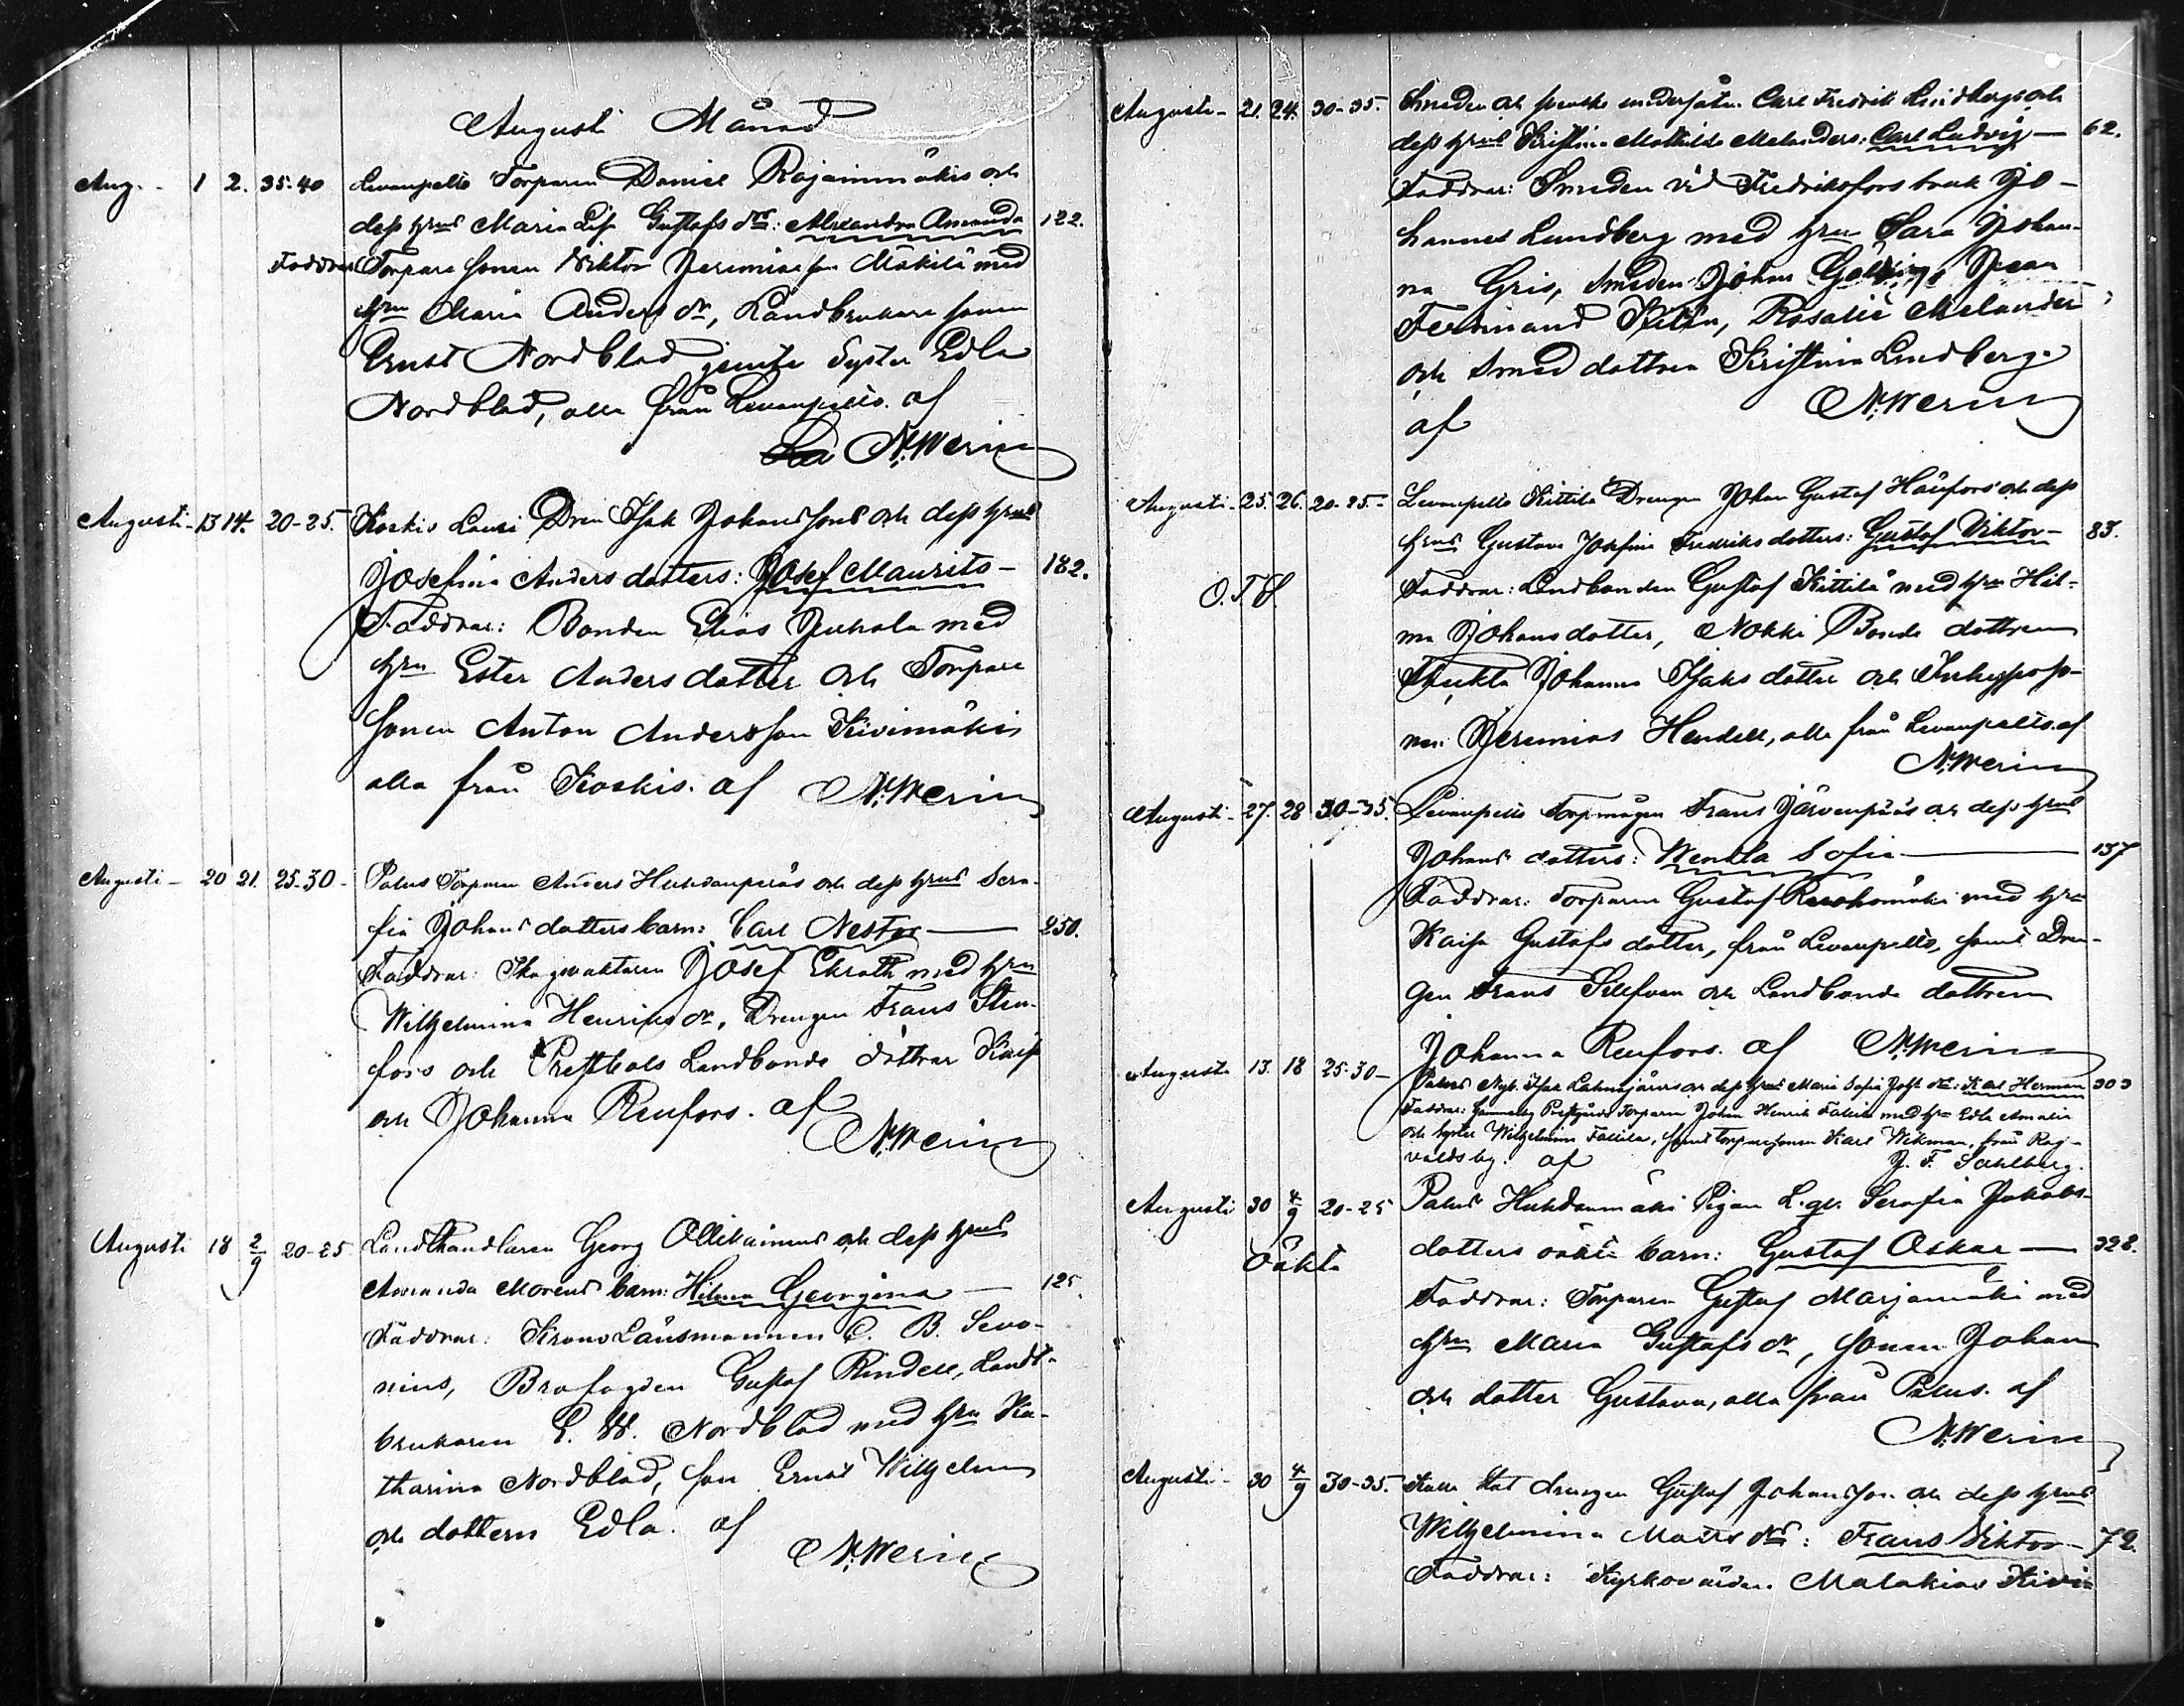 Augusti Månad
Aug. - 1 2. 35-40 Levanpelto Torparen Daniel Rajainmäkis och
dess hrus Maria Lis. Gustafs drs: Alexandra Amanda 122.
Faddrar Torpare sonen Viktor Jeremiae son Mäkelä med
hru Maria Anders dr, Landbrukare sonen
Ernst Nordblad jemte Syster Edla
Nordblad, alla från Levanpelto. af
N. Werin
Augusti - 13 14. 20-25. Koskis Lausi Drn Isak Johanssons och dess hrus
Josefina Anders dotters: Josef Maurits - 182.
Faddrar: Bonden Elias Juhola med
hru Ester Anders dotter och Torpare
sonen Anton Andersson Kivimäki
alla från Koskis. af N. Werin
Augusti - 20 21. 25-30 - Palus Torparen Anders Huhdanperäs och dess hrus Sera-
fia Johans dotters barn: Carl Nestor - 250.
Faddrar: Skogvaktaren Josef Ekroth med hru
Wilhelmina Henriks dr, Drengen Frans Sten-
fors och Landbonde döttrar Kaisa
och Johanna Renfors. af
N. Werin
Augusti 18 2/9 20-25 Landthandlaren Georg Ollikainens och dess hrus
Amanda Morens barn: Hilma Georgina - 125.
Faddrar: Krono Länsmannen C. B. Sevo-
nius, Brofogden Gustaf Rindell, Landt-
brukaren E. W. Nordblad med hru Ka-
tharina Nordblad, son Ernst Wilhelm
och dottern Edla. af
N. Werin
Augusti - 21. 24. 30-35. Smeden och svenske undersåten Carl Fredrik Lindbergs och
dess hrus Kristina Mathilda Melanders: Carl Ludvig - 62.
Faddrar: Smeden vid Fredriksfors bruk Jo-
hannes Lundberg med hru Sara Johan-
na Gris, Smeden Johan Jean
Ferdinand Rosalie Melander
och Smed dottren Kristina Lindberg.
af N. Werin
Augusti - 25. 26. 20-25. - Levanpelto Kittilä Drengen Johan Gustaf Haufors och dess
hrus Gustava Josefina Fredriks dotters: Gustaf Viktor - 83.
O.T.S. Faddrar: Landbonden Gustaf Kittilä med hru Hil-
ma Johans dotter, Nokki Bonde dottren
Thekla Johanna Isaks dotter och Inhyseso-
nen Jeremias Hendell, alla från Levanpelto. af
N. Werin
Augusti - 27. 28 30-35. Levanpelto Torpmågen Frans Järvenpääs och dess hrus
Johans dotters: Wendla Sofia - 137
Faddrar: Torparen Gustaf med hru
Kaisa Gustafs dotter, från Levanpelto, samt Dren-
gen Frans och Landbonde dottren
Johanna Renfors. af N. Werin
Augusti 13. 18 25-30 - Palus Nyb. Isak Lahnajärvis och dess hrus Maria Sofia Johs drs: Karl Herman 303
Faddrar: Gammelby Prestgårds Torparen Johan Henrik Fallila med hru Edla Amalia
och syster Wilhelmina Fallila, samt torparesonen Karl Wikman, från Rag-
valdsby. af J. F. Sahlberg.
Augusti 30 4/9 20-25 Palus Huhdanmäki Pigan L. qv. Serafia Jakobs
Oäkta dotters oäkta barn: Gustaf Oskar - 328.
Faddrar: Torparen Gustaf Marjamäki med
hru Maria Gustafs dr, sonen Johan
och dotter Gustava, alla från Palus. af
N. Werin
Augusti - 30 4/9 30-35. Stat drengen Gustaf Johansson och dess hrus
Wilhelmina Matts drs: Frans Viktor - 72.
Faddrar: Kyrkovärden Malakias Kivi-